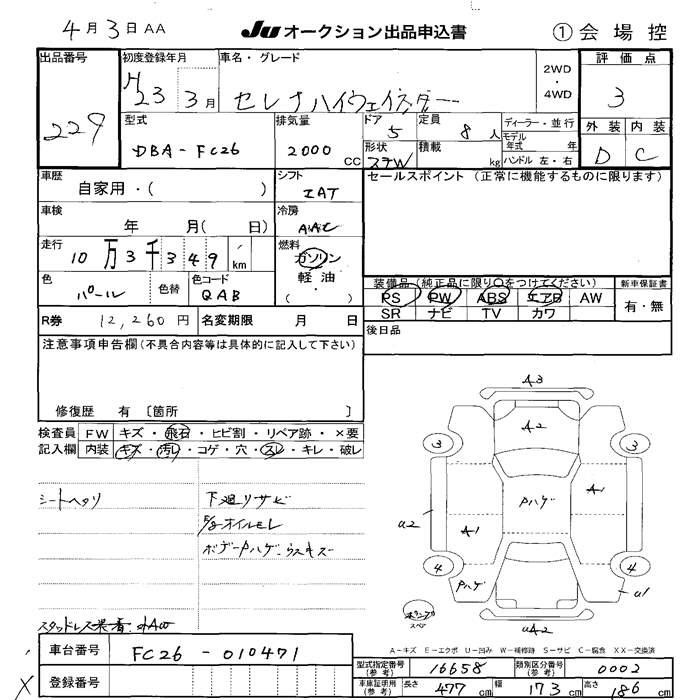 4月3日AA
JU オークション出品申込書
① 会場控
出品番号
229
初度登録年月
H23 3月
車名・グレード
セレナハイウェイスター
2WD
・
4WD
評価点
3
外装 内装
D C
型式
DBA-FC26
排気量
2000 CC
ドア 5
形状 STW
定員 8 人
積載 kg
ディーラー・並行
モデル年式 年
ハンドル 左・右
車歴
自家用・( )
シフト
IAT
セールスポイント (正常に機能するものに限ります)
車検
年 月( 日)
冷房
AAC
走行
10万3千349 km
燃料
ガソリン
軽油・
( )
色
パール
色替
色コード
QAB
装備品 (純正品に限り○をつけてください)
PS PW ABS エアB AW
SR ナビ TV カワ
新車保証書
有・無
R券 12,260円
名変期限 月 日
後日品
注意事項申告欄(不具合内容等は具体的に記入して下さい)
修復歴 有 〔箇所 〕
検査員記入欄
FW キズ・飛石・ヒビ割・リペア跡・×要
内装 キズ・汚れ・コゲ・穴・スレ・キレ・破レ
シートヘタリ
下廻りサビ
E/gオイルモレ
ボデーPハゲ・ウスキズ
スタッドレス装着・社外AW
A3
A2
3
3
Pハゲ
A1
A1
U2
4
4
Pハゲ
U1
UA2
スペア
A-キズ E-エクボ U-凹み W-補修跡 S-サビ C-腐食 XX-交換済
車台番号 FC26-010471
登録番号
型式指定番号(参考) 16658
類別区分番号(参考) 0002
車庫証明用(参考) 長さ 477cm 幅 173cm 高さ 186cm